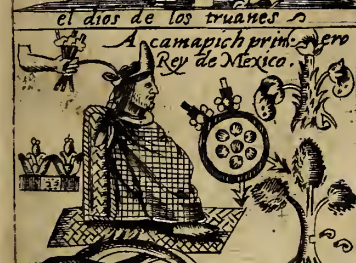 el dios de los truanes
Acamapich prim: ero
Rey de Mexico.